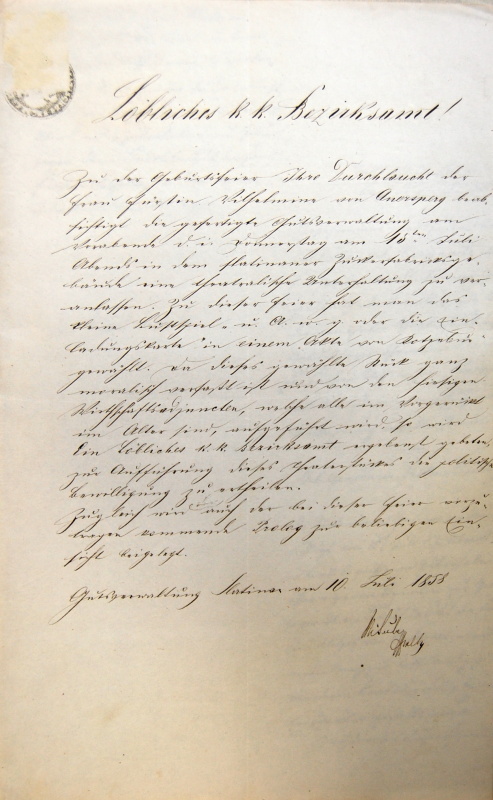 Löbliches k. k. Bezirksamt!
Zu der Geburtsfeier Ihro Durchlaucht der
Frau Fürstin Vilhelmine von Auersperg beab-
sichtigt die gefertigte Gutsverwaltung am
Vorabende d. i. Donnerstag am 15ten Juli
Abends in dem slatinaner Zuckerfabriksge-
bäude eine theatralische Unterhaltung zu ver-
anlassen. Zu dieser Feier hat man das
kleine Lustspiel „U. A. w. g. oder die Ein-
ladungskarte" in einem Akte von Kotzebue
gewählt. Da dieses gewählte Stück ganz
moralisch verfaßt ist und von den hiesigen
Wirthschaftsadjuncten, welche alle im
im Alter sind, aufgeführt wird so wird
Ein Löbliches k. k. Bezirksamt ergebenst gebeten,
zur Aufführung dieses Theaterstückes die politische
Bewilligung zu ertheilen.
Zugleich wird auch der bei dieser Feier vorzu-
tragen kommende Prolog zur beliebigen Ein-
sicht beigelegt.
Gutsverwaltung Slatinan am 10. Juli 1858